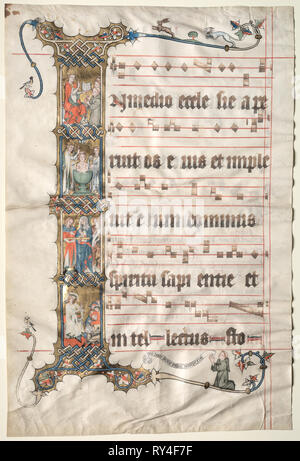 In medio eccle sie a pe
ruit os e ius et imple
uit e um dominus
spiritu sapi entie et
in tel lectus sto
alamy
RY4F7F